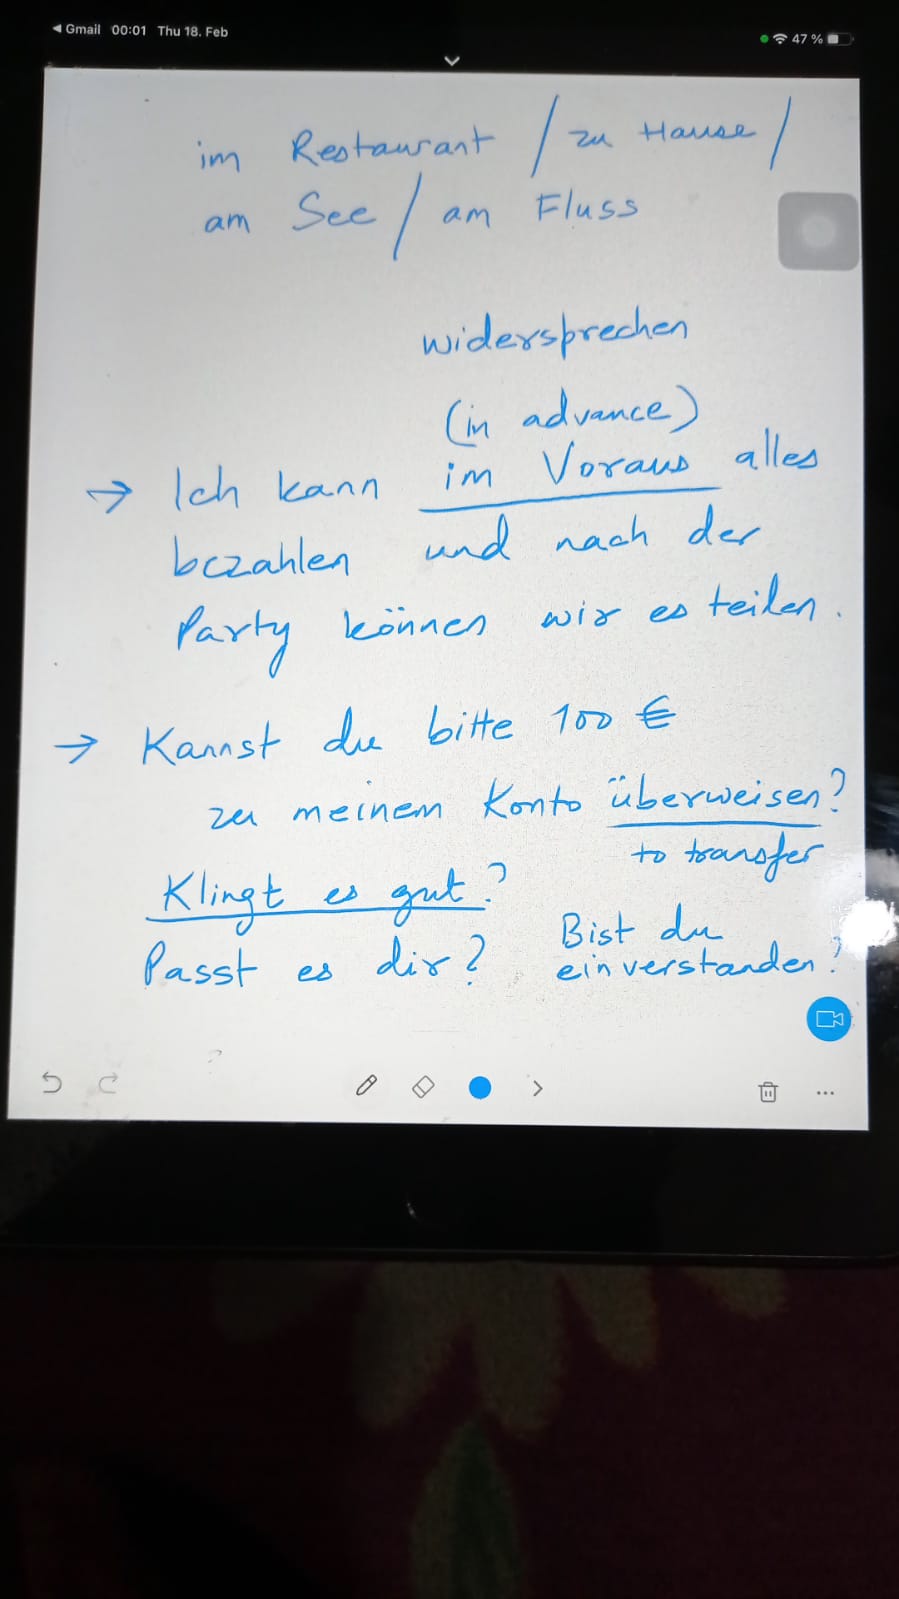 ◀ Gmail 00:01 Thu 18. Feb 47 %
im Restaurant / zu Hause /
am See / am Fluss
widersprechen
(in advance)
→ Ich kann im Voraus alles
bezahlen und nach der
Party können wir es teilen.
→ Kannst du bitte 100 €
zu meinem Konto überweisen?
to transfer
Klingt es gut?
Passt es dir? Bist du
einverstanden?